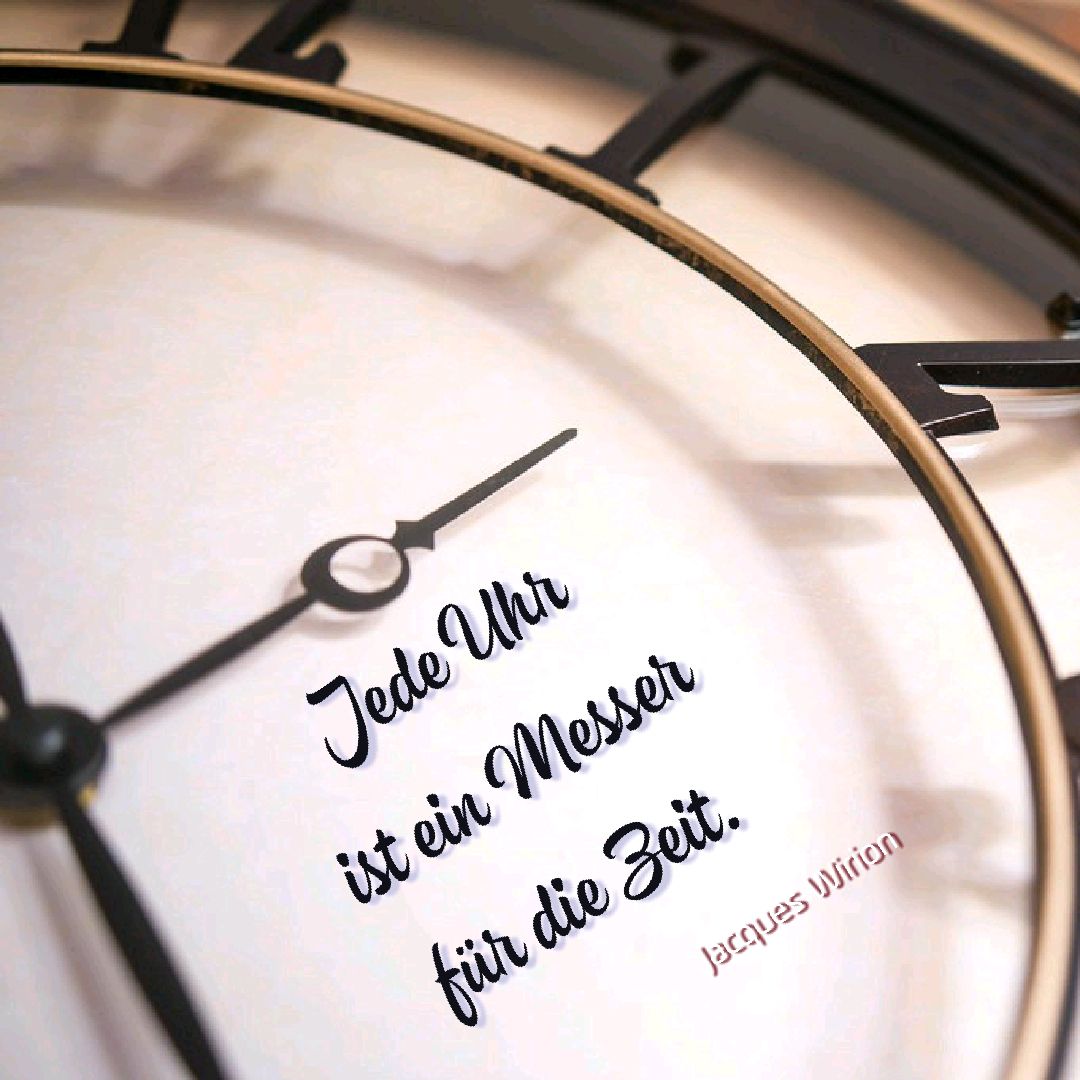 Jede Uhr
ist ein Messer
für die Zeit.
Jacques Wirion